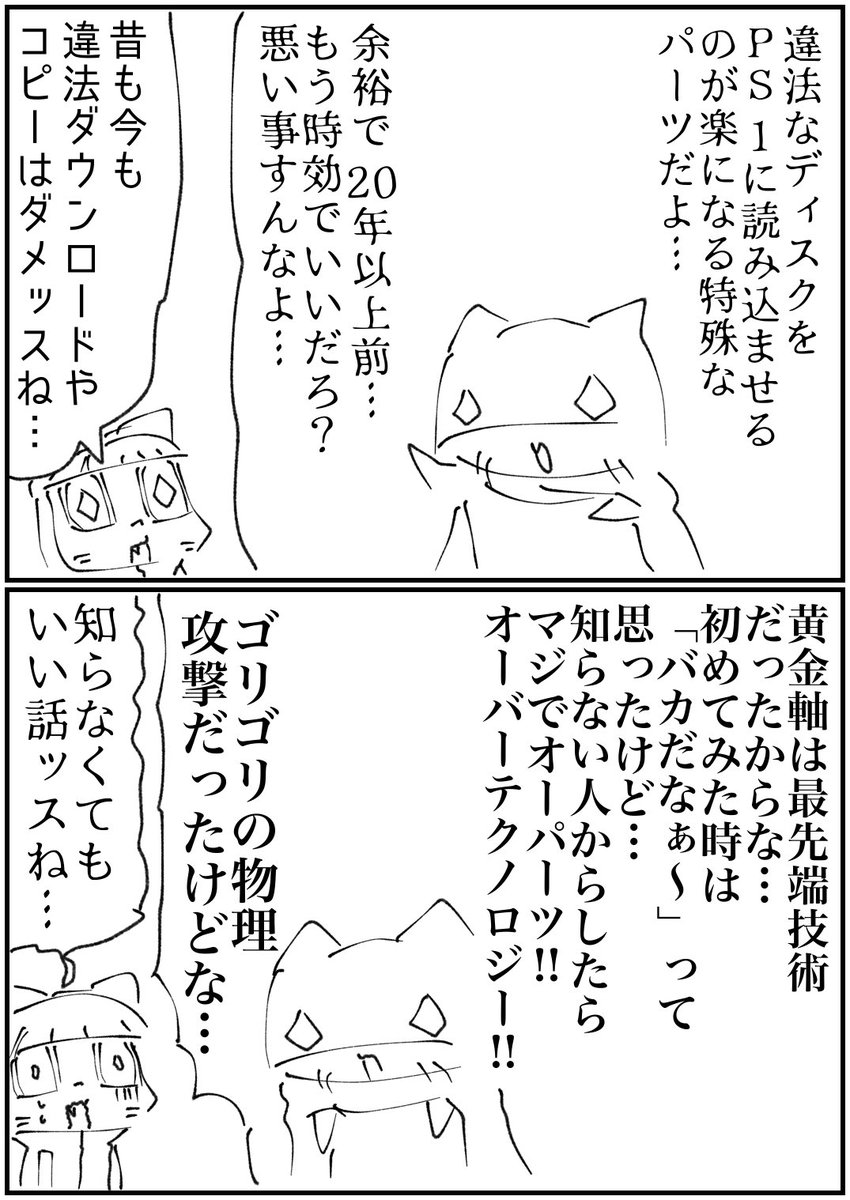 違法なディスクを
PS1に読み込ませる
のが楽になる特殊な
パーツだよ…
余裕で20年以上前…
もう時効でいいだろ？
悪い事すんなよ…
昔も今も
違法ダウンロードや
コピーはダメッスね…
黄金軸は最先端技術
だったからな…
初めてみた時は
「バカだなぁ～」って
思ったけど…
知らない人からしたら
マジでオーパーツ!!
オーバーテクノロジー!!
ゴリゴリの物理
攻撃だったけどな…
知らなくても
いい話ッスね…